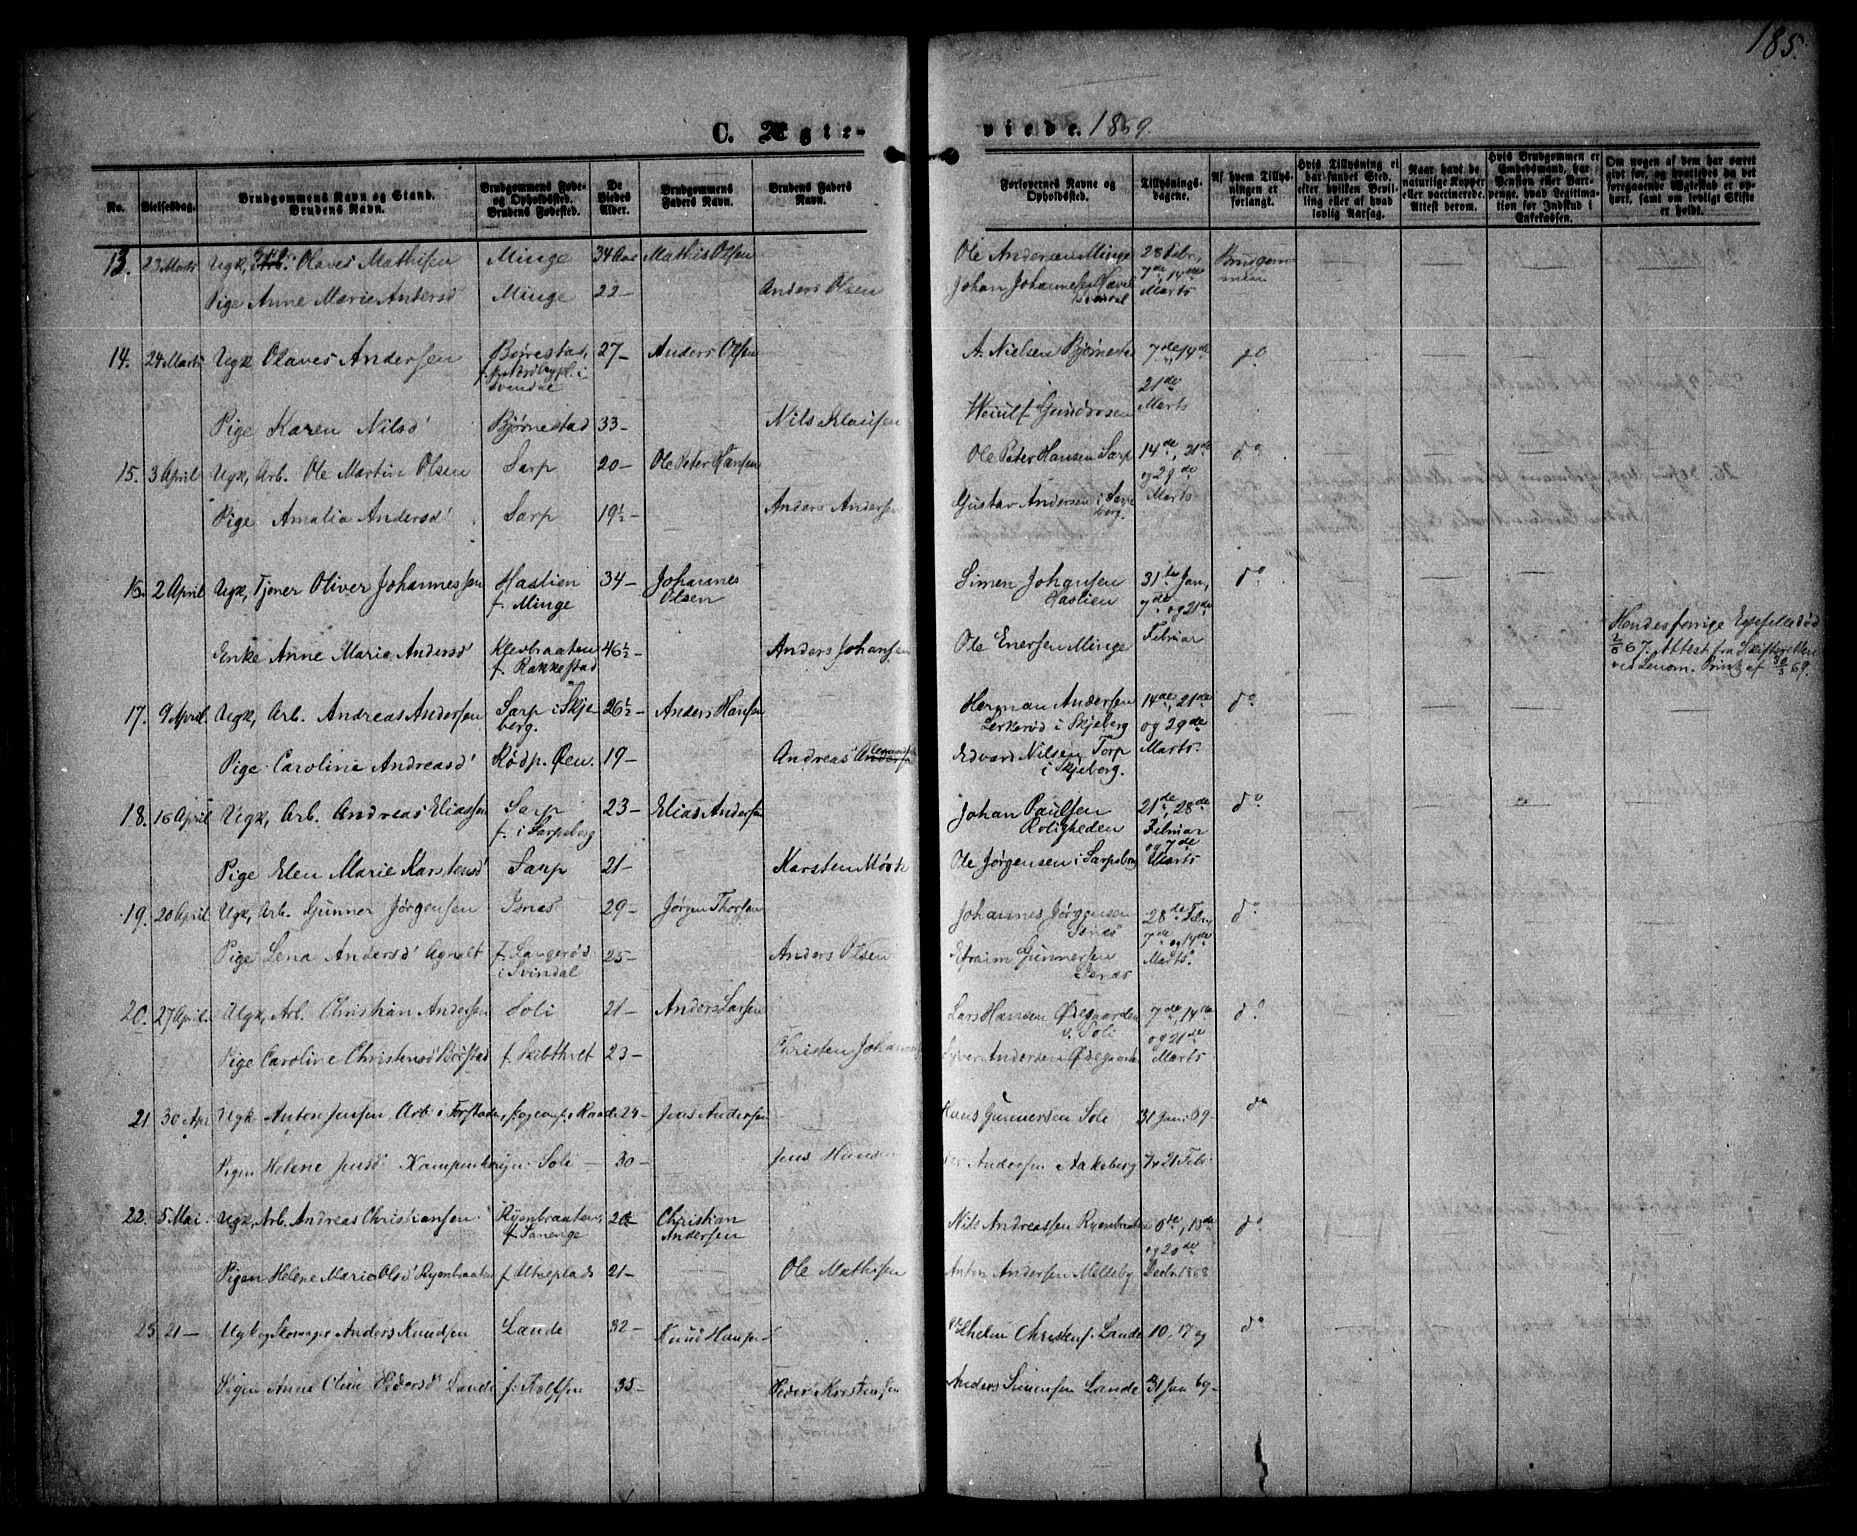 185.
C. Ægte-
viede. 1869.
No.
Vielsesdag.
Brudgommens Navn og Stand.
Brudens Navn.
Brudgommens Føde-
og Opholdssted.
Brudens Fødested.
De
Viedes
Alder.
Brudgommens
Faders Navn.
Brudens Faders
Navn.
Forlovernes Navne og
Opholdssted.
Tillysnings-
dagene.
Af hvem Tillys-
ningen er
forlangt.
Hvis Tillysning ei
har fundet Sted,
efter hvilken Bevil-
ling eller af hvad
lovlig Aarsag.
Naar havt de
naturlige Kopper
eller vaccinerede.
Attest derom.
Hvis Brudgommen er
Embedsmand, har
Pension eller Vart-
penge, hvad Legitima-
tion for Indskud i
Enkekassen.
Om nogen af dem har været
gift før, og hvorledes da det
foregaaende Ægteskab er op-
hørt, samt om lovligt Skifte
er holdt.
13. 23 Marts Ugk, Olaves Mathisen Minge 34 Aar Mathis Olsen Ole Andersen Minge 28 Febr, Brudgom-
men
7de, 14de
Pige Anne Marie Andersd Minge 22 — Anders Olsen Johan Johannesen Marts
14. 24 Marts Ugk Olaves Andersen Bjørestad, 27 — Anders Olsen A. Nielsen Bjørnestad 7de, 14de do
i
Svendal 21de
Pige Karen Nilsd' Bjørnestad 33 — Nils Klausen Gundrosen Marts
15. 3 April Ugk, Arb. Ole Martin Olsen Sarp 20 — Ole Peter Hansen Ole Peter Hansen Sarp 14de, 21de do
og 29de
Pige Amalia Andersd' Sarp 19½ — Anders Andersen Gustav Andersen i Sarps Marts
berg.
16. 2 April Ugk, Tjener Oliver Johannessen Haslien 34 — Johannes Simen Johansen 31te Jan, do
f. Minge Olsen Haslien 7de og 21de
Enke Anne Marie Andersd' Klevbraaten 46½ — Anders Johansen Ole Enersen Minge Februar
f. Rakkestad
Hendes forrige Egtefelle død
67. Attest fra Skifteretten
ved Lensm. Printz af 30/3 69.
17. 9 April. Ugk, Arb. Andreas Andersen Sarp i Skje 26½ — Anders Hansen Herman Andersen 14de, 21de do
berg. Lerkerød i Skjeberg og 29de
Pige Caroline Andreasd' Rødp. Øen. 19 — Andreas Edvard Nilsen Torp Marts.
i Skjeberg.
18. 16 April Ugk, Arb. Andreas Eliassen Sarp 23 — Elias Andersen Johan Paulsen 21de, 28de do
f. i Sarpsborg Roligheden Februar
og 7de
Pige Elen Marie Karstensd' Sarp 21 — Karsten Ole Jørgensen i Sarpsborg Marts
19. 20 April Ugk, Arb. Gunner Jørgensen Isnæs 29 — Jørgen Thorsen Johannes Jørgensen 28de Febr. do
Isnæs 7de og 14de
Pige Lena Andersd' Agnalt f. Langerød 25 — Anders Olsen Efraim Gunnersen Marts.
i Svindal Isnæs
20. 27 April. Ugk, Arb. Christian Andersen Soli 21 — Anders Larsen Lars Hansen Ødegaarden 7de, 14de do
v. Soli og 21de
Pige Caroline Christensd' f. Skibthvet 23 — Christen Johan Andersen Ødegaarden Marts
21. 30 Apr Ugk Anton Jensen Arb. i Forstaden, f. Raade 24 — Jens Andersen Hans Gunnersen Sole 31 Jan. 69. do
Pigen Helene Jensd' Kampenhaug Soli — 30 — Jens Andersen Aakeberg 7 & 21 Febr
22. 5 Mai. Ugk, Arb. Andreas Christiansen Ryenbraaten, Christian Nils Andreassen Ryenbraaten 6te, 13de do
f. Andersen og 20de
Pigen Helene Marie Olsd' Ryenbraaten f. 21 — Ole Mathisen Anton Andersen Melleby Decbr. 1868
23. 21 — Ugk og Skomager Anders Knudsen Lande 32 — Knud Hansen Vilhelm Christens. Lande 10, 17 og do
Pigen Anne Pedersd' Lande 35 — Peder Karstensen Anders Simensen Lande 31 Jan 69 —